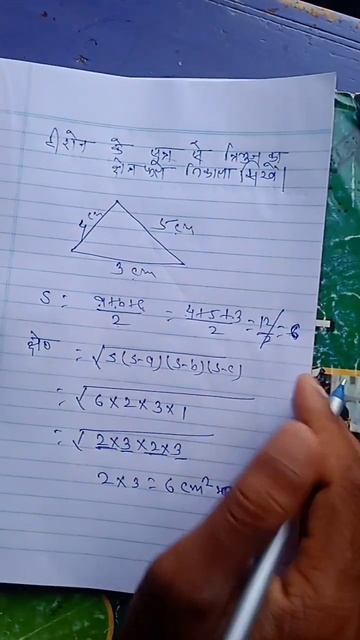 हीरोन के सूत्र से त्रिभुज का
क्षेत्रफल निकाला सिखें।
4 cm
5 cm
3 cm
S = a+b+c/2 = 4+5+3/2 = 12/2 = 6
क्षे० = √s(s-a)(s-b)(s-c)
= √6×2×3×1
= √2×3×2×3
2×3 = 6 cm²